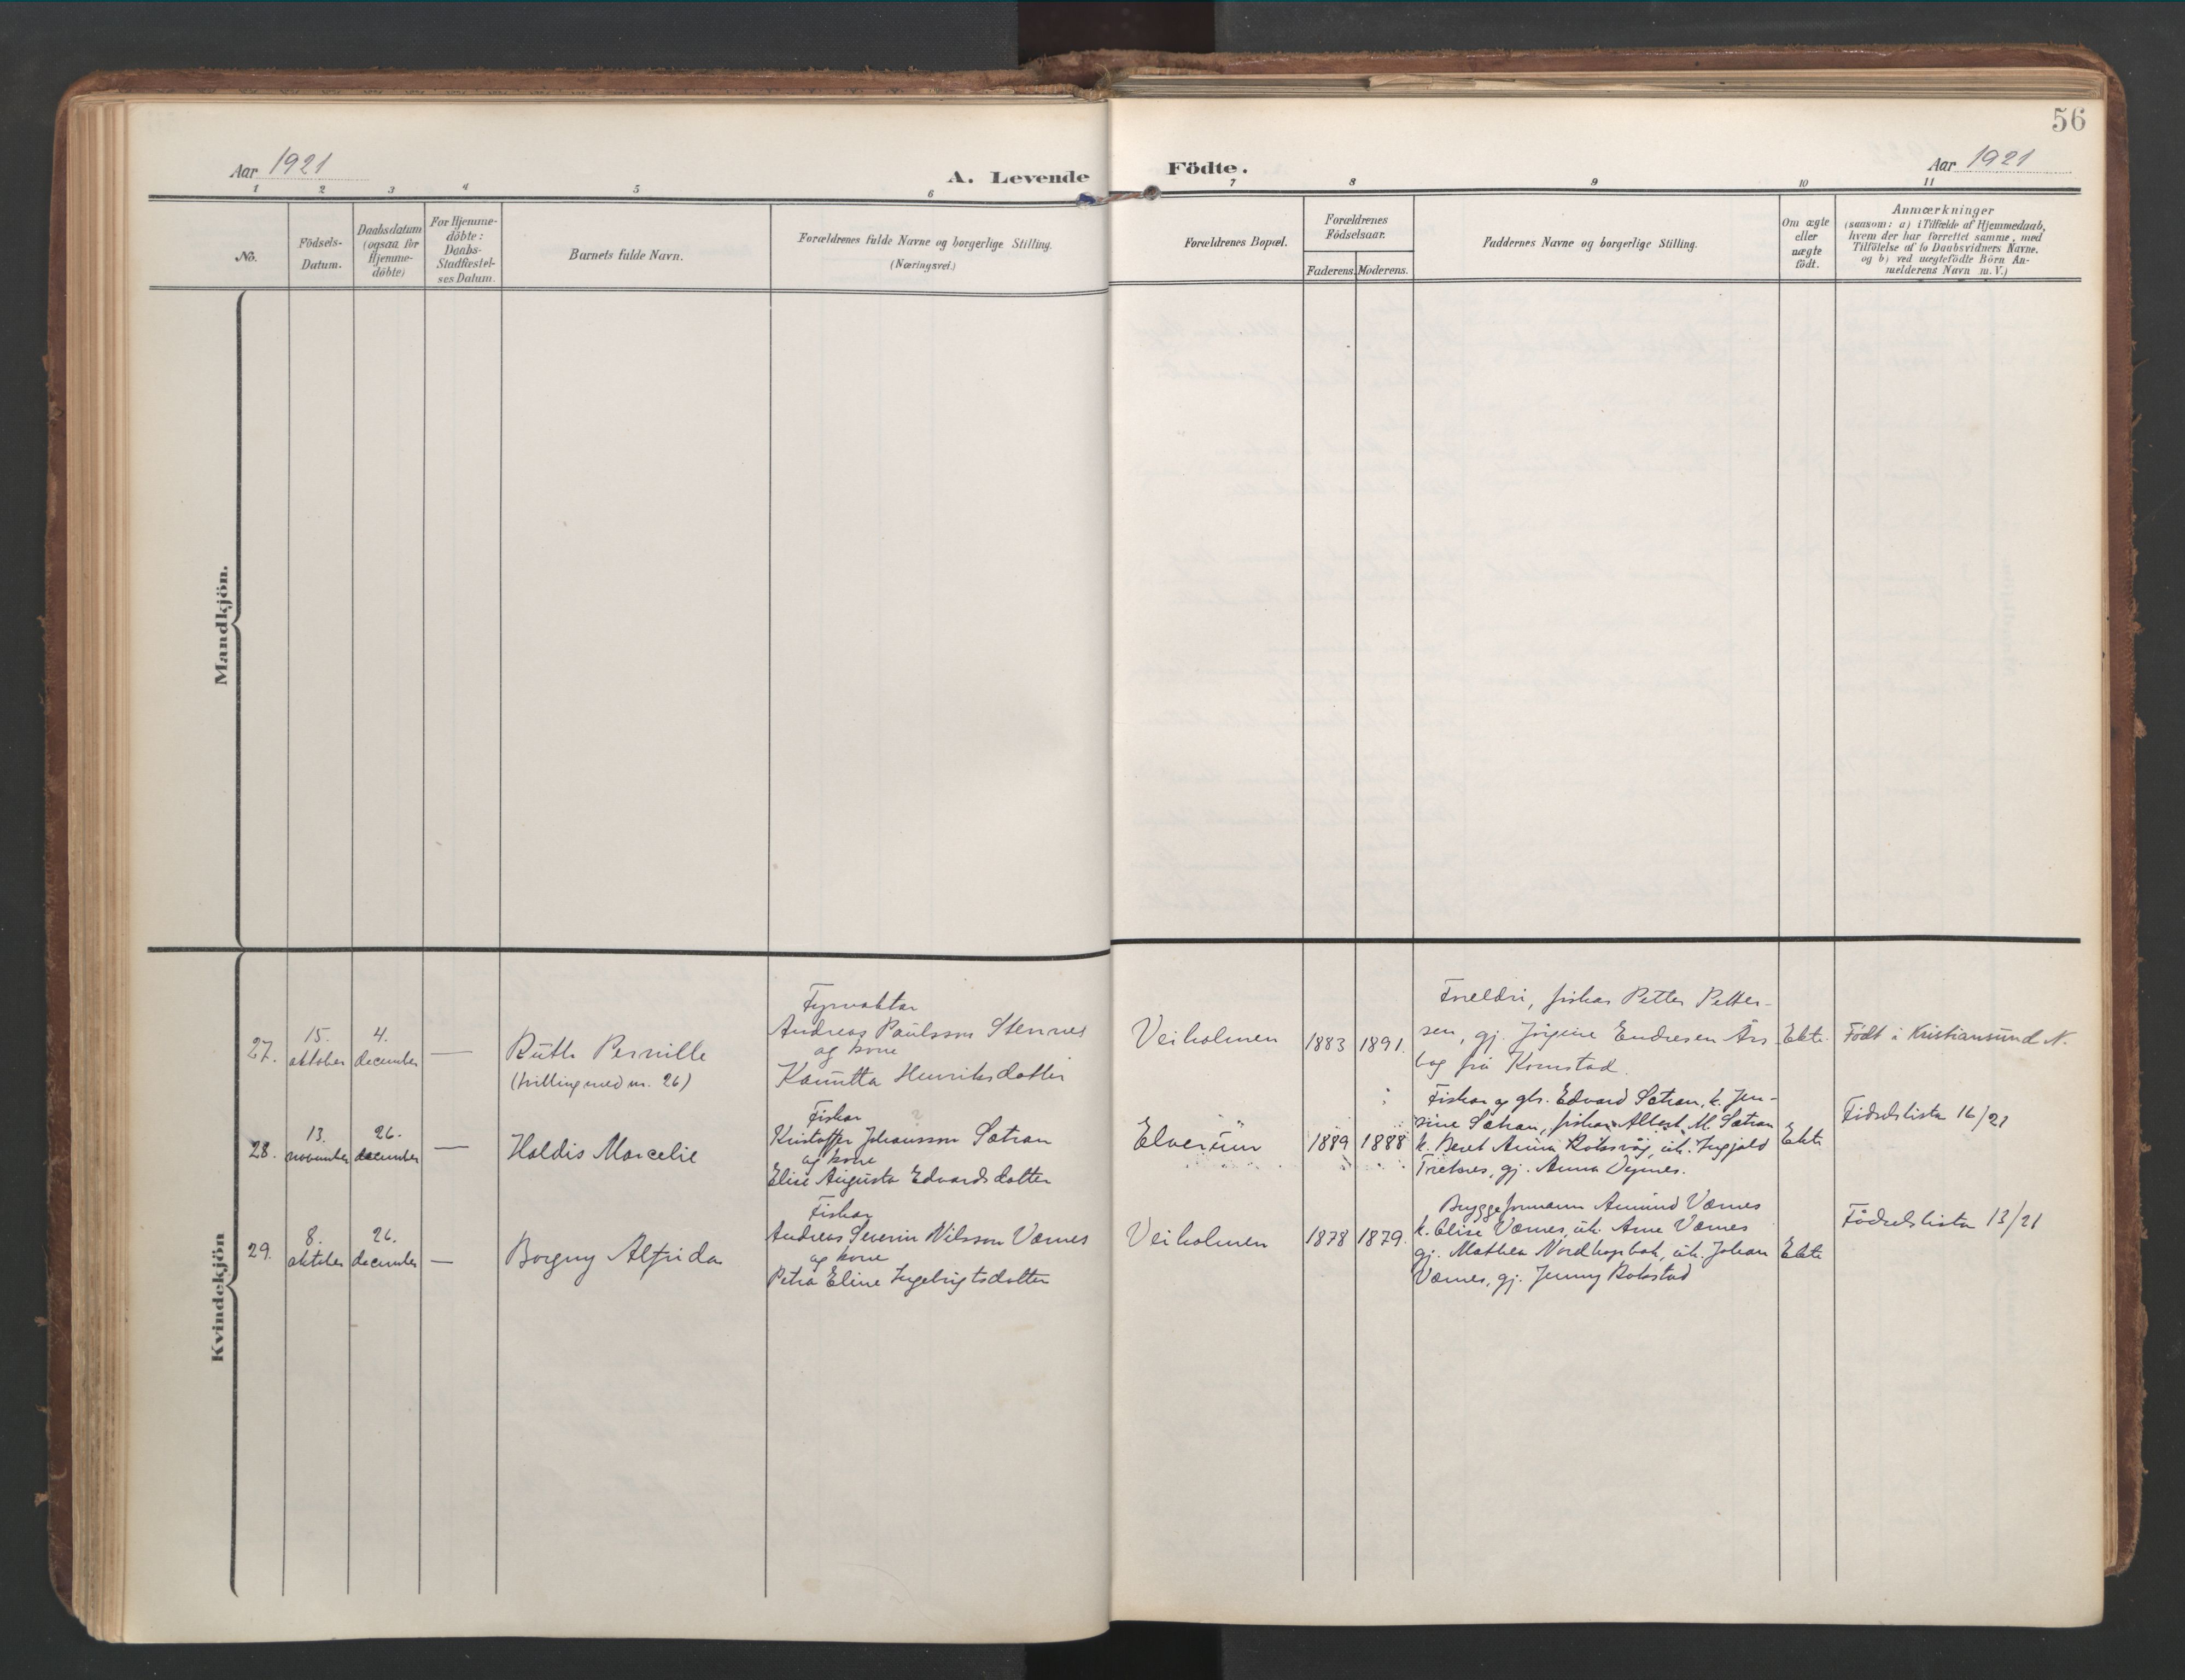 56
Aar 1921
A. Levende
Födte.
Aar 1921
1 2 3 4 5 6 7 8 9 10 11
No.
Födsels-
Datum.
Daabsdatum
(ogsaa for
Hjemme-
döbte)
For Hjemme-
döbte:
Daabs-
Stadfestel-
ses Datum.
Barnets fulde Navn.
Forældrenes fulde Navne og borgerlige Stilling.
(Næringsvei.)
Forældrenes Bopæl.
Forældrenes
Födselsaar.
Faderens. Moderens.
Faddernes Navne og borgerlige Stilling.
Om ægte
eller
uægte
födt.
Anmærkninger
(saasom: a) i Tilfælde af Hjemmedaab,
hvem der har forrettet samme, med
Tilföielse af to Daabsvidners Navne.
og b) ved uægtefödte Börn An-
melderens Navn m. V.)
Mandkjön.
Kvindekjön
27.
15.
oktober
4.
december
—
Ruth Pernille
(tvilling med nr. 26)
Fyrvaktar
Andreas Paulsson Stennes
og kone
Kanutta Henriksdotter
Veiholmen
1883
1891.
Foreldri, fiskar Petter Petter-
sen, gj. Jörgine Endresen Års
bog frå Kornstad.
Ekte.
Födt i Kristiansund N.
28.
13.
november
26.
december
—
Haldis Marcelie
Fiskar ?
Kristoffer Johansson Sætran
og kone
Elise Augusta Edvardsdotter
Elverum
1889
1888
Fiskar og gbr. Edvard Sætran, k. Jen-
sine Sætran, fiskar Albert M. Sætran
k. Beret Anna Roksvåg, uk. Ingjald
gj. Anna
Ekte
Födselslista 16/21
29.
8.
oktober
26.
december
—
Borgny Alfrida
Fiskar
Andreas Severin Nilsson Værnes
og kone
Petra Eline Ingebrigtsdotter
Veiholmen
1878
1879.
Bryggeformann Amund Værnes
k. Elise Værnes, uk. Arne Værnes
gj. Mathea Nordhopbak, uk. Johan
Værnes, gj. Jenny Rokstad
Ekte
Födselslista 13/21